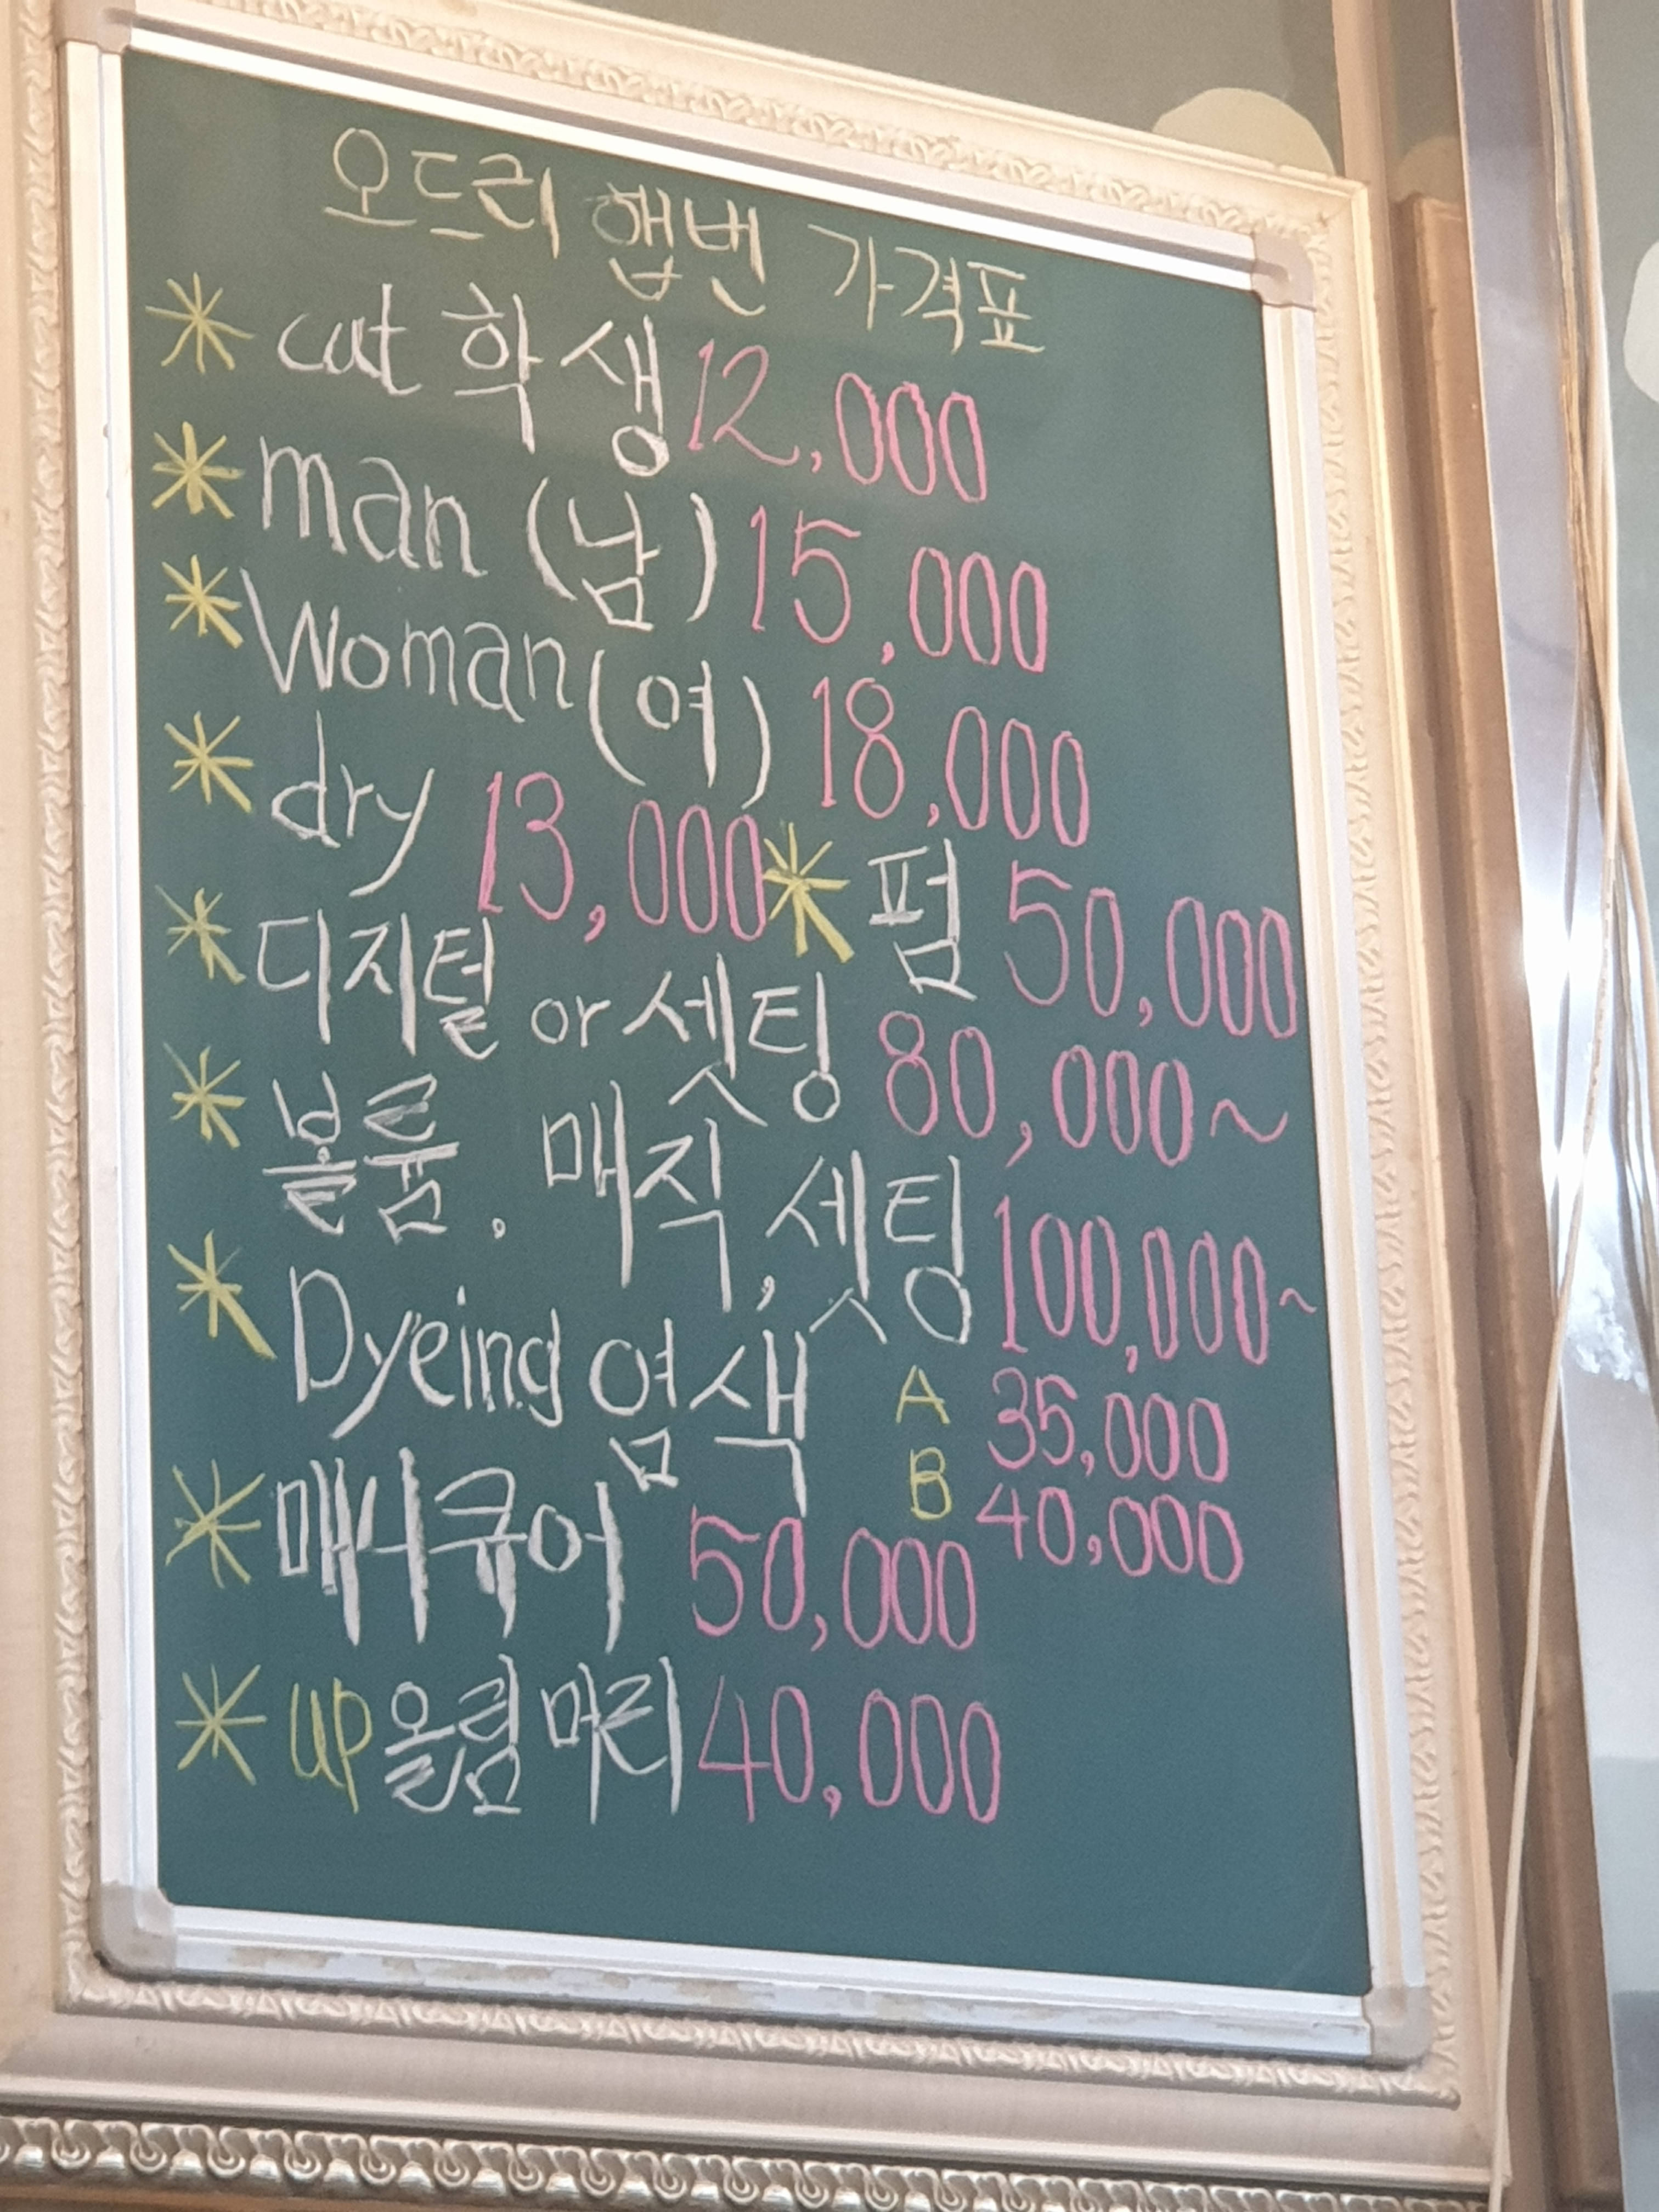 오드리 햅번 가격표
* cut 학생 12,000
* man (남) 15,000
* Woman (여) 18,000
* dry 13,000 * 펌 50,000
* 디지털 or 셋팅 80,000~
* 볼륨, 매직, 셋팅 100,000~
* Dyeing 염색 A 35,000
B 40,000
* 매니큐어 50,000
* up 올림머리 40,000